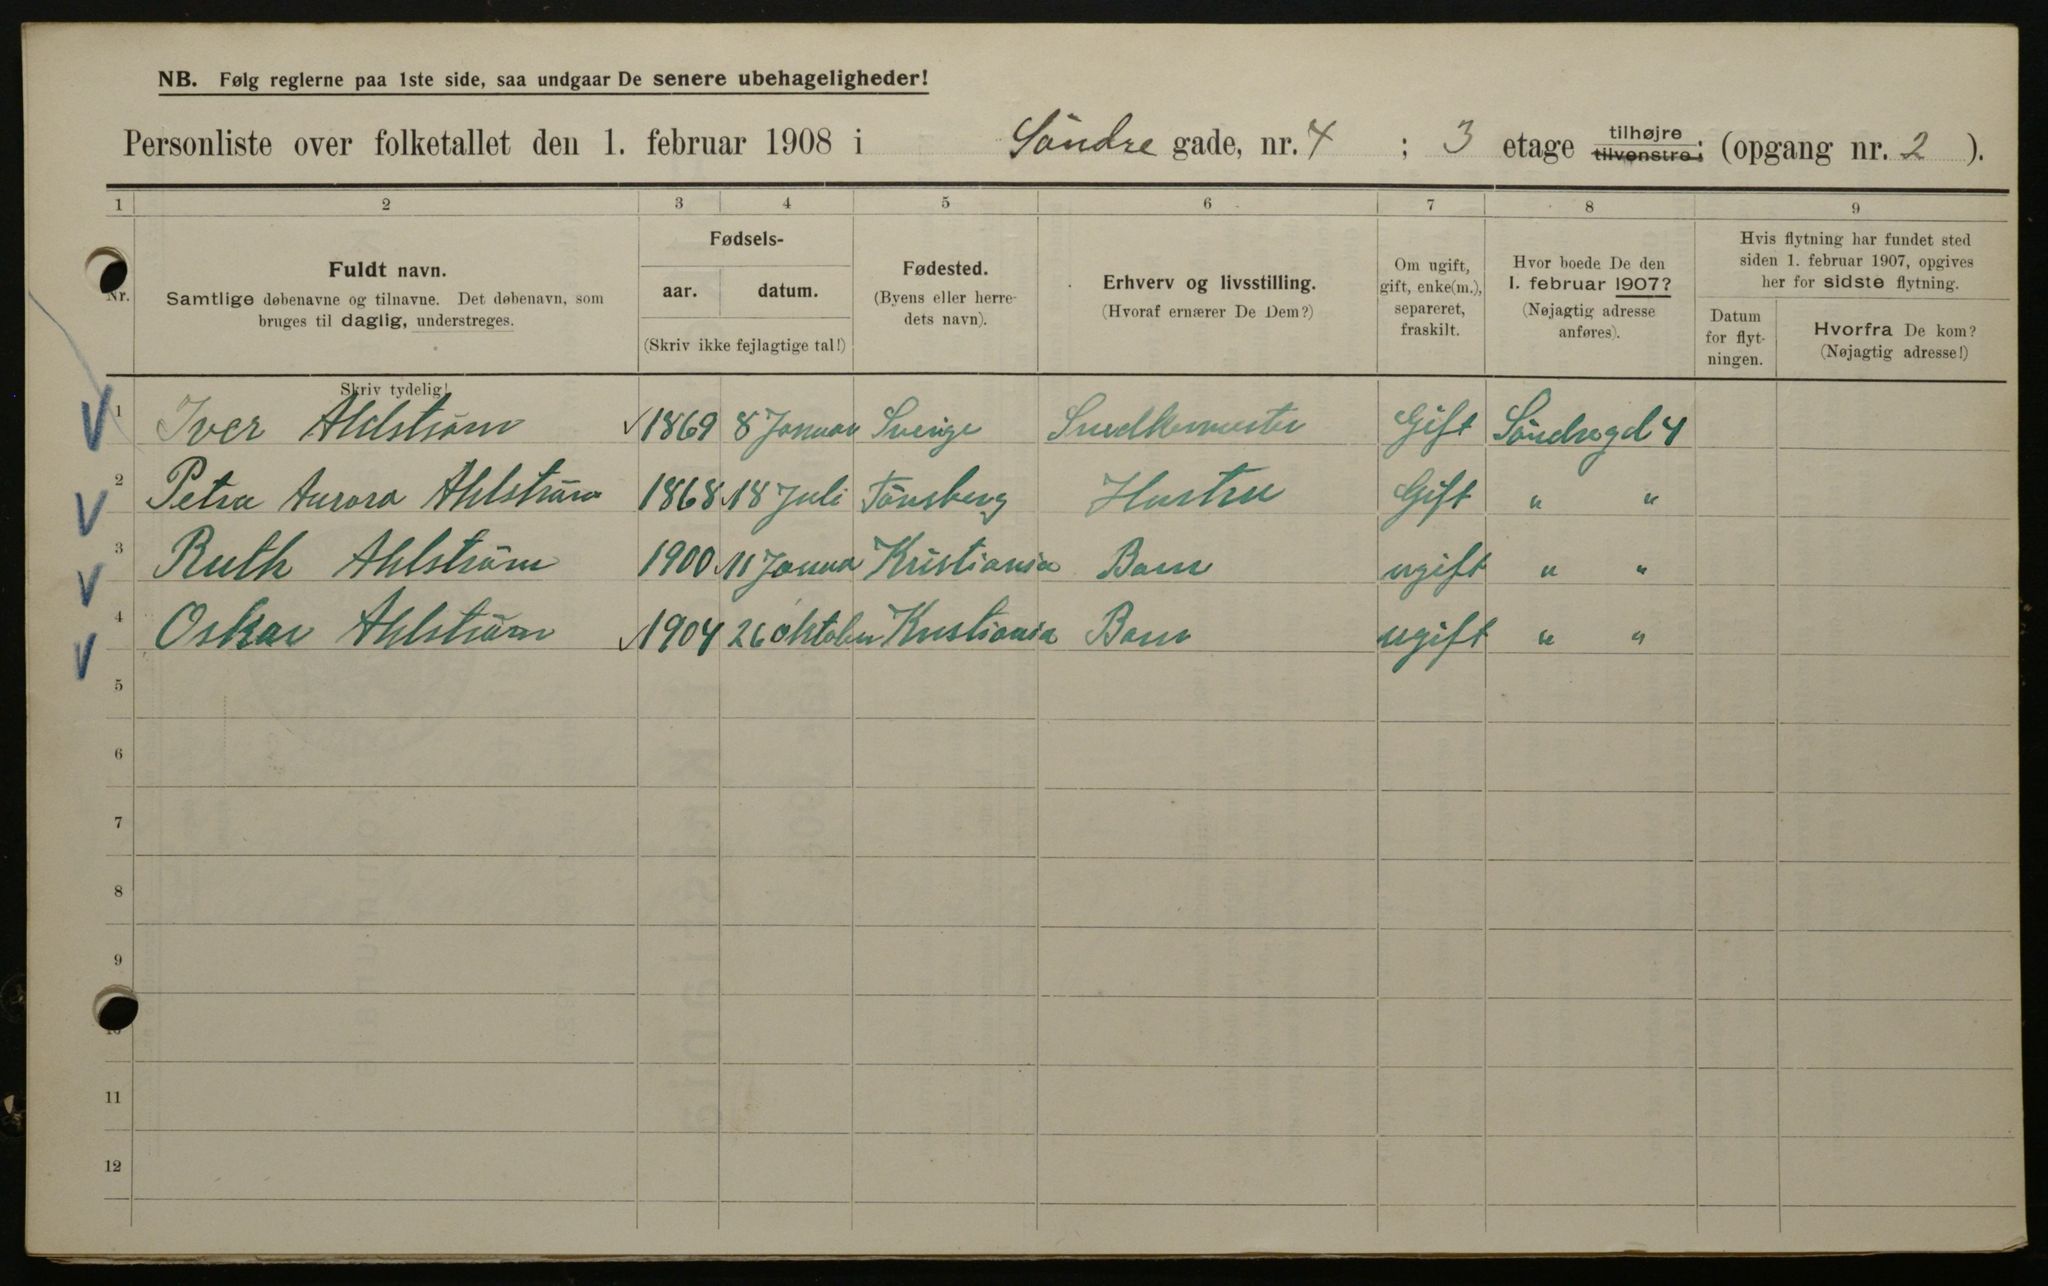 NB. Følg reglerne paa 1ste side, saa undgaar De senere ubehageligheder!
Personliste over folketallet den 1. februar 1908 i Söndre gade, nr. 4 ; 3 etage tilhøjre tilvenstre; (opgang nr. 2 ).
1 2 3 4 5 6 7 8 9
Nr.
Fuldt navn.
Samtlige døbenavne og tilnavne. Det døbenavn, som
bruges til daglig, understreges.
Skriv tydelig!
Fødsels-
aar. datum.
(Skriv ikke fejlagtige tal!)
Fødested.
(Byens eller herre-
dets navn).
Erhverv og livsstilling.
(Hvoraf ernærer De Dem?)
Om ugift,
gift, enke(m.),
separeret,
fraskilt.
Hvor boede De den
1. februar 1907?
(Nøjagtig adresse
anføres).
Hvis flytning har fundet sted
siden 1. februar 1907, opgives
her for sidste flytning.
Datum
for flyt-
ningen.
Hvorfra De kom?
(Nøjagtig adresse!)
1 Iver Ahlström 1869 8 Januar Sverige Snedkermester Gift Söndregd 4
2 Petra Aurora Ahlström 1868 18 Juli Tönsberg Hustru Gift " "
3 Ruth Ahlström 1900 11 Janua Kristiania Barn ugift " "
4 Oskar Ahlström 1904 26 Oktober Kristiania Barn ugift " "
5
6
7
8
9
10
11
12